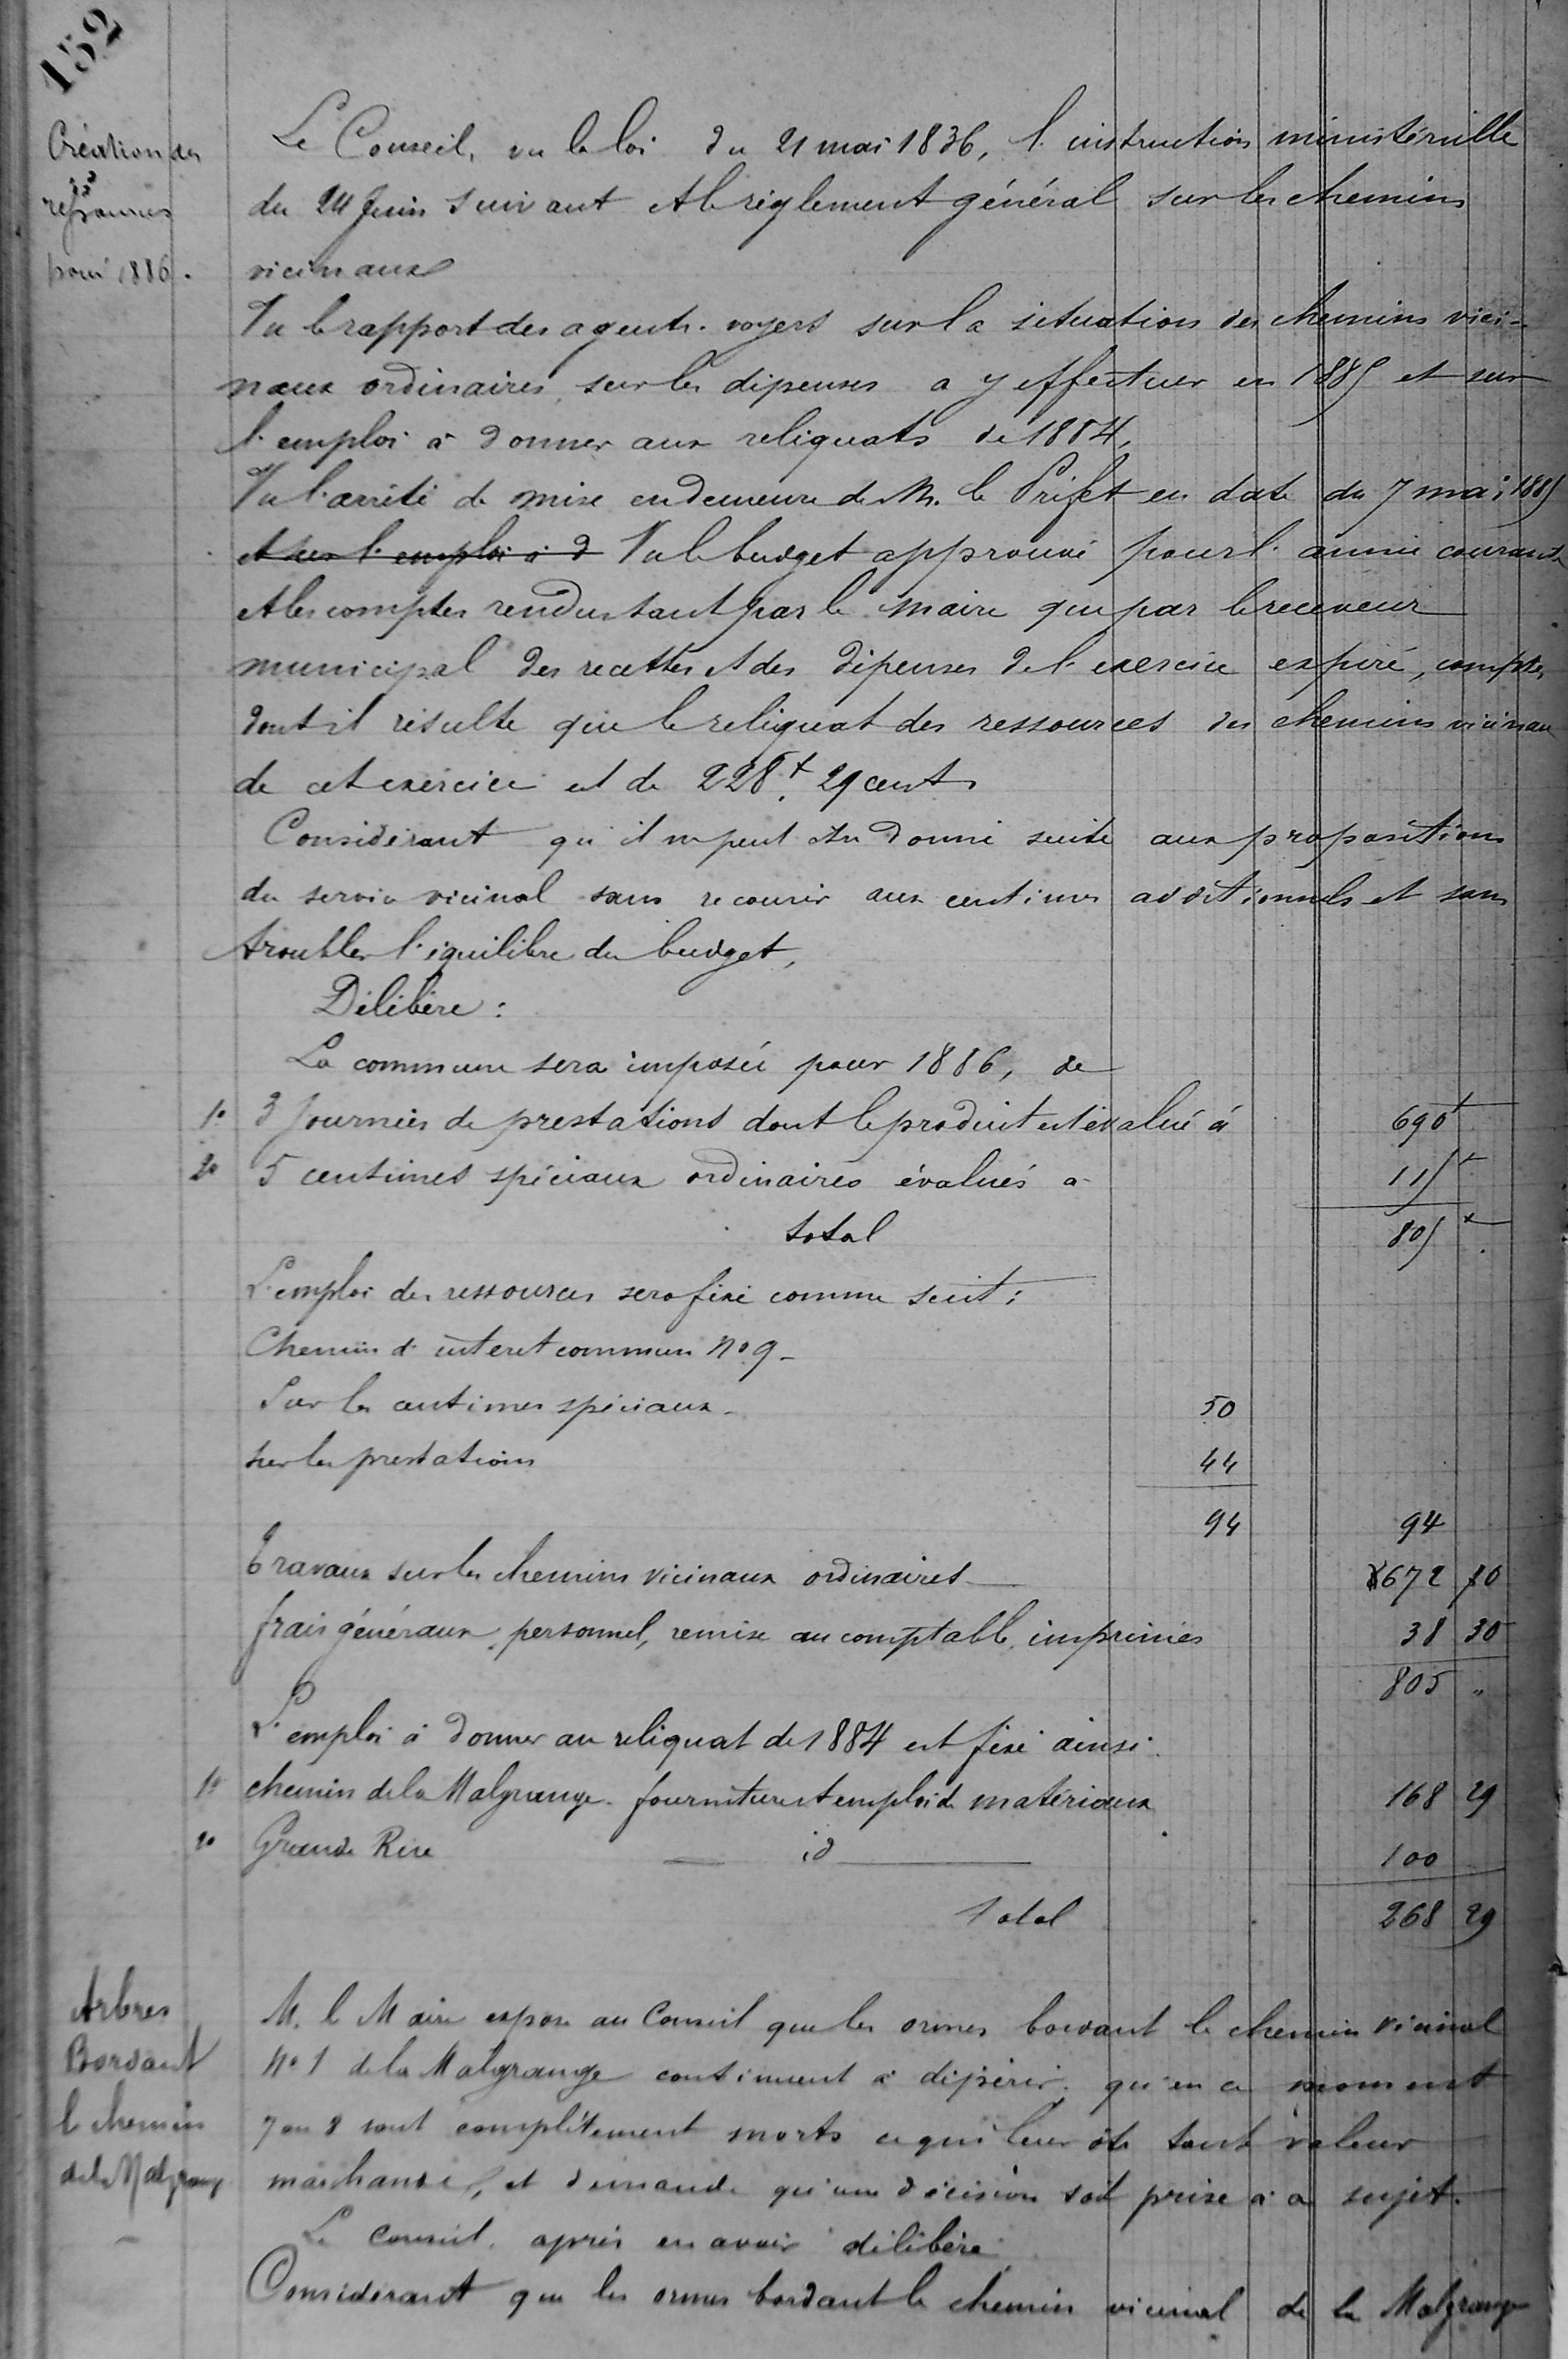 152
Création des
ressources
pour 1886.
Le Conseil, vu la loi du 21 mai 1836, l'instruction ministérielle
du 24 Juin suivant et le règlement général sur les chemins
vicinaux
Vu le rapport des agents-voyers sur la situation des chemins vici-
naux ordinaires, sur les dépenses a y effectuer en 1885 et sur
l'emploi à donner aux reliquats de 1884,
Vu l'arrêté de mise en demeure de M. le Préfet en date du 7 mai 1885
et sur l'emploi à d Vu le budget approuvé pour l'année courante
et les comptes rendus tant par le Maire que par le receveur
municipal des recettes et des dépenses de l'exercice expiré, comptes
dont il résulte que le reliquat des ressources des chemins vicinaux
de cet exercice est de 228f. 29 cent
Considérant qu'il ne peut être donné suite aux propositions
du service vicinal sans recourir aux centimes additionnels et sans
troubler l'équilibre du budget,
Délibère :
La commune sera imposée pour 1886, de
1° 3 Journées de prestations dont le produit est évalué à 690f
2° 5 centimes spéciaux ordinaires évalués a 115f
total 805f
L'emploi des ressources sera fixé comme suit :
Chemin d'interet commun N° 9 -
Sur les centimes spéciaux - 50
sur les prestations 44
94 94
Travaux sur les chemins vicinaux ordinaires 672 70
frais généraux, personnel, remise au comptable, imprimés 38 30
805 "
L'emploi à donner au reliquat de 1884 est fixé ainsi
1° chemin de la Malgrange. fourniture et emploi de matériaux 168 29
2° Grande Rue id 100
Total 268 29
Arbres
Bordant
le chemin
de la Malgrange
M. le Maire expose au Conseil que les ormes bordant le chemin vicinal
N° 1 de la Malgrange continuent à dépérir, qu'en ce moment
7 ou 8 sont complètement morts ce qui leur ôte toute valeur
marchande, et demande qu'une décision soit prise à ce sujet.
Le Conseil, après en avoir délibéré,
Considérant que les ormes bordant le chemin vicinal de la Malgrange